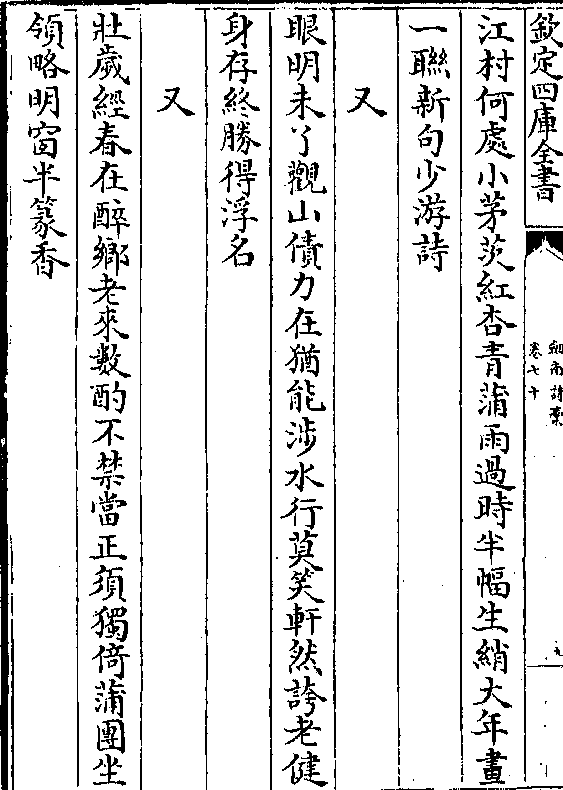 欽定四庫全書
劍南詩稾
卷七十
江村何處小茅茨紅杏青蒲雨過時半幅生綃大年畫
一聯新句少游詩
又
眼明未了觀山債力在猶能涉水行莫笑軒然誇老健
身存終勝得浮名
又
壯歲經春在醉鄉老來數酌不禁當正須獨倚蒲團坐
領略明窗半篆香